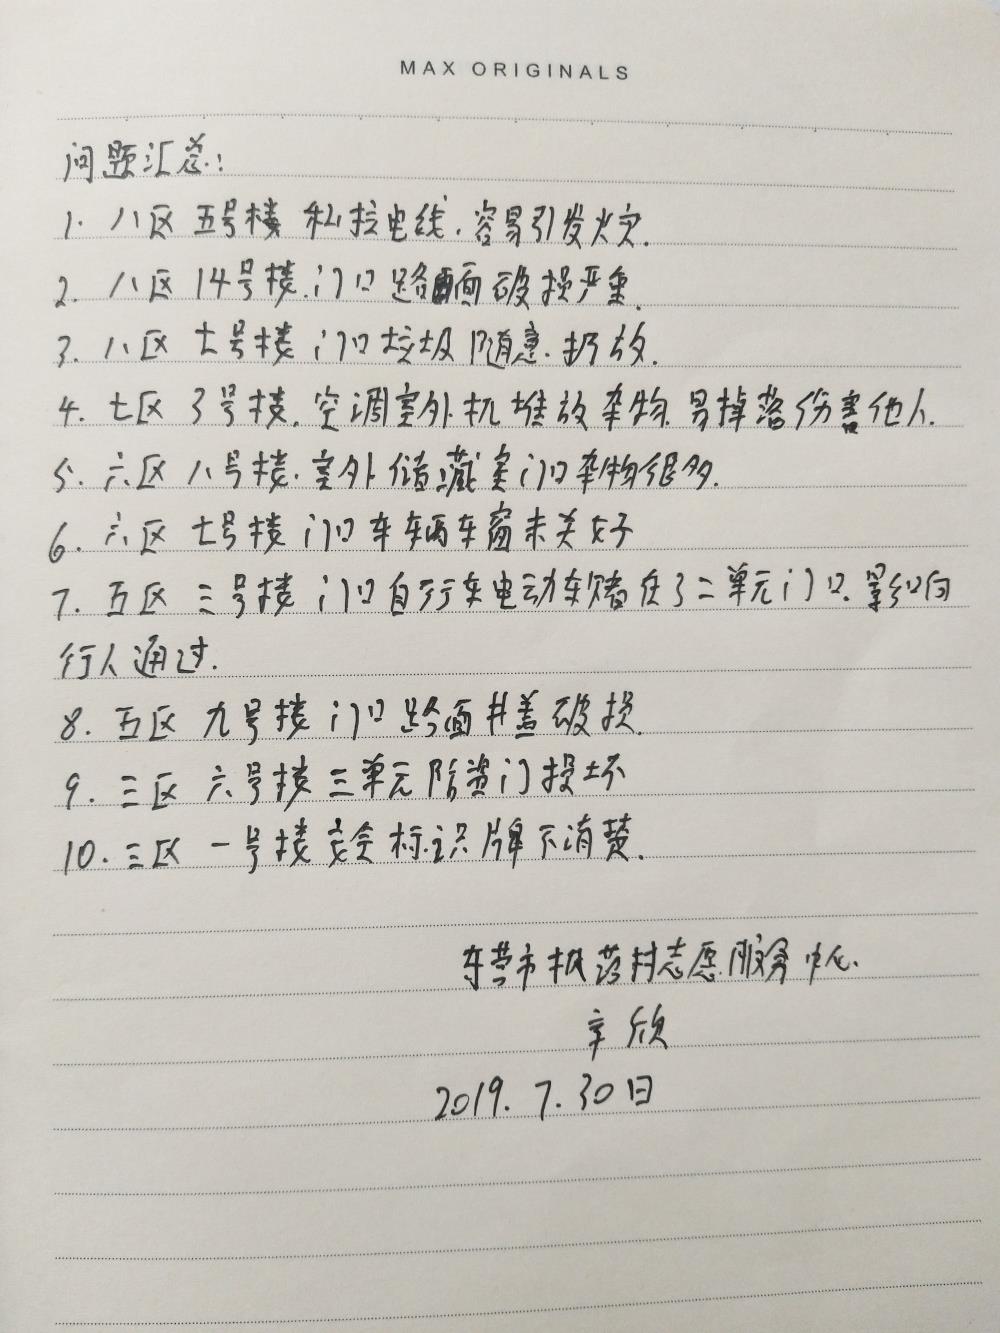 MAX ORIGINALS
问题汇总:
1. 八区 五号楼 私拉电线.容易引发火灾.
2. 八区 14号楼.门口 路面破损严重.
3. 八区 七号楼 门口垃圾随意.扔放.
4. 七区 3号楼.空调室外机堆放杂物.易掉落伤害他人.
5. 六区 八号楼.室外储藏室门口杂物很多.
6. 六区 七号楼 门口车辆车窗未关好
7. 五区 三号楼 门口自行车电动车堵住了二单元门口.影响
行人通过.
8. 五区 九号楼 门口路面井盖破损.
9. 三区 六号楼三单元防盗门损坏
10. 三区 一号楼安全标识牌不清楚.
东营市极营村志愿服务中心.
辛欣
2019.7.30日